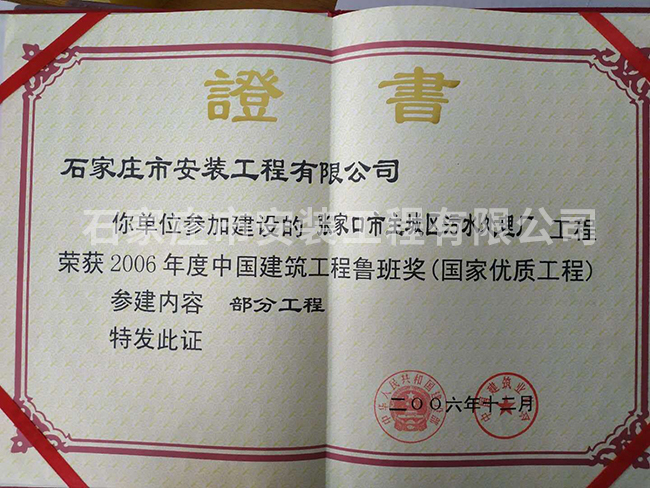 證書
石家庄市安装工程有限公司
你单位参加建设的 张家口市主城区污水处理厂 工程
石家庄市安装工程有限公司
荣获2006年度中国建筑工程鲁班奖(国家优质工程)
参建内容 部分工程
特发此证
二〇〇六年十二月